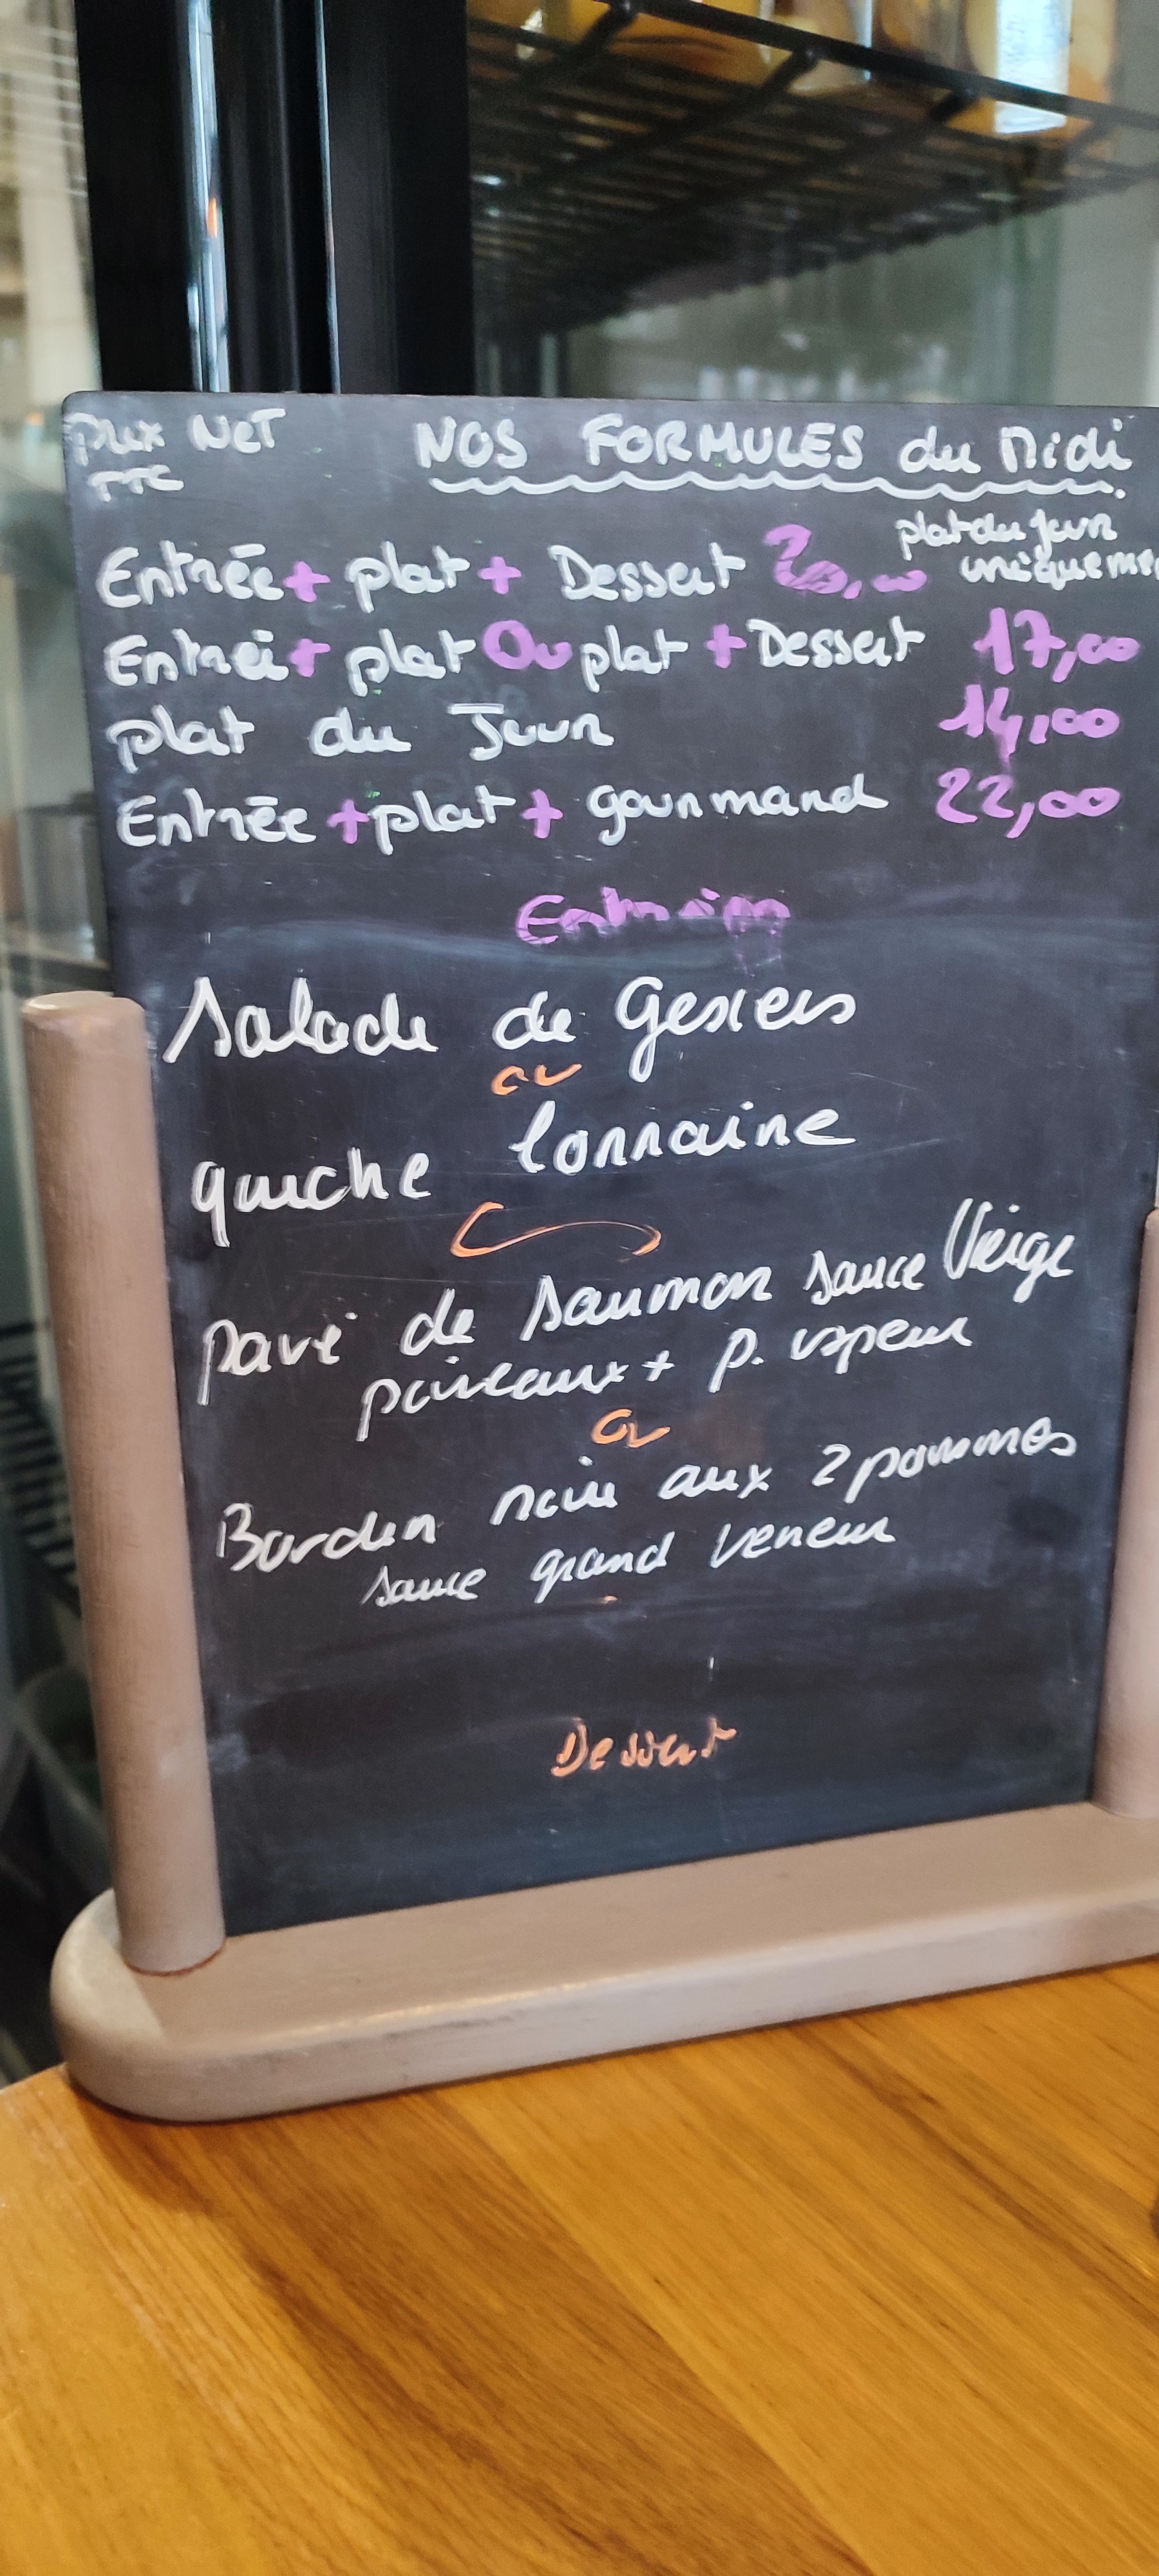 Prix NeT
TTC
NOS FORMULES du Midi
plat du jour
uniqueme
Entrée + plat + Dessert 20,00
Entrée + plat Ou plat + Dessert 17,00
plat du Jour 14,00
Entrée + plat + gourmand 22,00
Salade de Gesiers
ou
quiche lorraine
pavé de saumon sauce Vierge
poireaux + p. vapeur
ou
Boudin noir aux 2 pommes
sauce grand veneur
Dessert